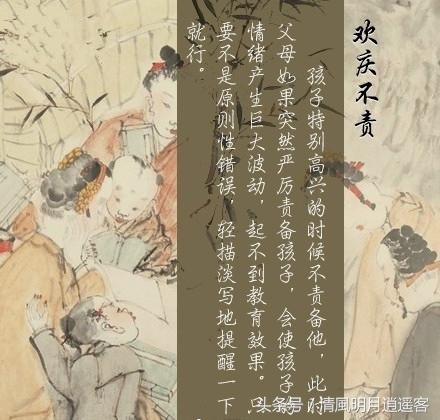 欢庆不责
孩子特别高兴的时候不责备他，此时
父母如果突然严厉责备孩子，会使孩子的
情绪产生巨大波动，起不到教育效果。只
要不是原则性错误，轻描淡写地提醒一下
就行。
头条号 / 清風明月逍遥客